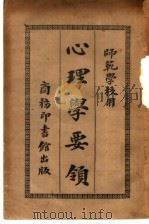 師範學校用
心理學要領
商務印書館出版